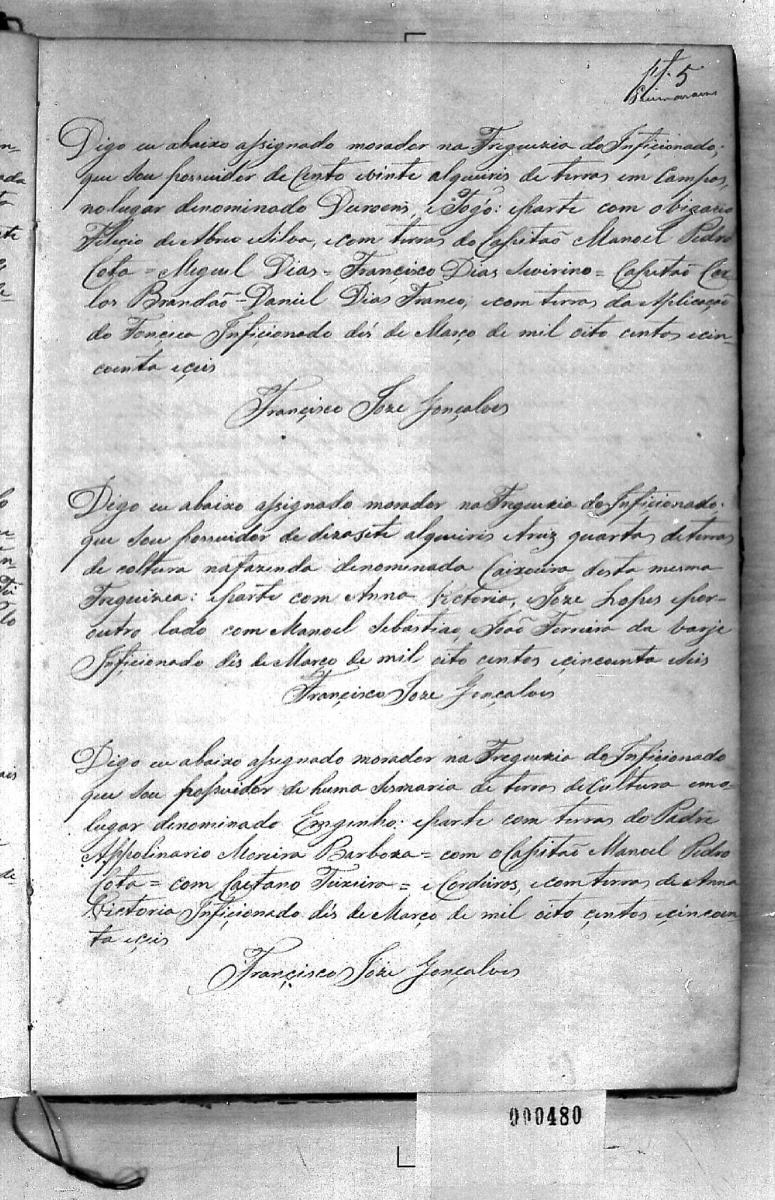 fl. 5
Guimaraens
Digo eu abaixo assignado morador na Freguezia do Infiçionado;
que sou possuidor de Cento evinte alqueiris de terras em Campos,
no lugar denominado e Fogó: eparte com o
Felicio de Abreu eSilva, ecom terras do Capitaõ Manoel Pedro
Cota = Miguel Dias = Françisco Dias Siverino = Capitaõ Car-
los Brandaõ = Daniel Dias Franco, ecom terras da Aplicaçaõ
do Fonçeca Infiçionado dés de Março de mil oito centos ecin-
coenta eçeis
Françisco Joze Gonçalves
Digo eu abaixo assignado morador na Freguezia do Infiçionado:
que sou possuidor de dezasete alqueiris quartas de terras
de coltura nafazenda denominada Caixoeira desta mesma
Freguizea: eparte com Anna Victoria, eJoze Lopes epor-
outro lado com Manoel Sebastiaõ, eJoaõ Ferreira da Varje
Infiçionado dés de Março de mil oito centos ecincoenta eseis
Françisco Joze Gonçalves
Digo eu abaixo assignado morador na Freguezia do Infiçionado
que sou possuidor de huma sesmaria de terras de Cultura em o-
lugar denominado Emgenho: eparte com terras do Padre
Appolinario Moreira Barboza = com o Capitaõ Manoel Pedro
Cota = com Caetano Teixeira = e Cordeiros, ecom terras de Anna
Victoria Infiçionado dés de Março de mil oito çentos eçincoen-
ta eçeis
Françisco Jôze Gonçalves
000480